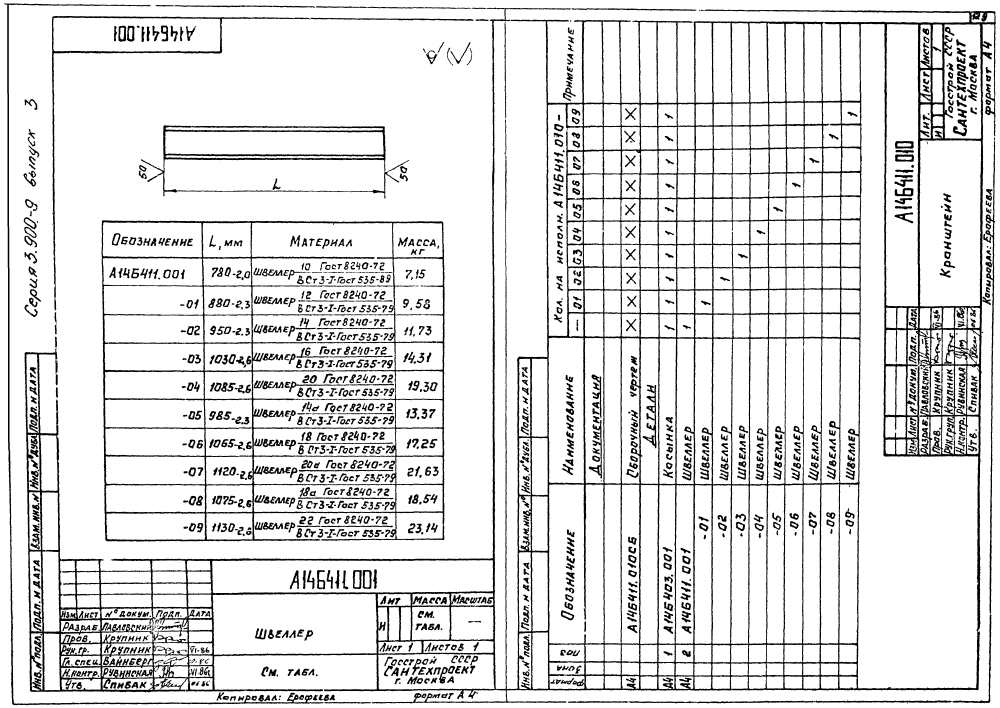 А14Б411.001
Серия 3.900-9 выпуск 3
50
50
L
Обозначение L, мм Материал Масса, кг
А14Б411.001 780-2,0 Швеллер 10 Гост 8240-72 / ВСт3-I-Гост 535-89 7,15
-01 880-2,3 Швеллер 12 Гост 8240-72 / ВСт3-I-Гост 535-79 9,58
-02 950-2,3 Швеллер 14 Гост 8240-72 / ВСт3-I-Гост 535-79 11,73
-03 1030-2,6 Швеллер 16 Гост 8240-72 / ВСт3-I-Гост 535-79 14,31
-04 1085-2,6 Швеллер 20 Гост 8240-72 / ВСт3-I-Гост 535-79 19,30
-05 985-2,3 Швеллер 14а Гост 8240-72 / ВСт3-I-Гост 535-79 13,37
-06 1065-2,6 Швеллер 18 Гост 8240-72 / ВСт3-I-Гост 535-79 17,25
-07 1120-2,6 Швеллер 20а Гост 8240-72 / ВСт3-I-Гост 535-79 21,63
-08 1075-2,6 Швеллер 18а Гост 8240-72 / ВСт3-I-Гост 535-79 18,54
-09 1130-2,6 Швеллер 22 Гост 8240-72 / ВСт3-I-Гост 535-79 23,14
Инв.№ подл. Подп. и дата Взам.инв.№ Инв.№ дубл. Подп. и дата
А14Б411.001
Изм. Лист № докум. Подп. Дата
Разраб. Павловский
Пров. Крупник
Рук.гр. Крупник VI-86
Гл.спец. Вайнберг
Н.контр. Рувинская VI.86
Утв. Спивак
Швеллер
См. табл.
Лит Масса Масштаб
И См. табл. —
Лист 1 Листов 1
Госстрой СССР
Сантехпроект
г. Москва
Копировал: Ерофеева формат А4
Формат Зона Поз Обозначение Наименование Кол. на исполн. А14Б411.010- Примечание
— 01 02 03 04 05 06 07 08 09
Документация
А4 А14Б411.010СБ Сборочный чертеж X X X X X X X X X X
Детали
А4 1 А14Б403.001 Косынка 1 1 1 1 1 1 1 1 1 1
А4 2 А14Б411.001 Швеллер 1
-01 Швеллер 1
-02 Швеллер 1
-03 Швеллер 1
-04 Швеллер 1
-05 Швеллер 1
-06 Швеллер 1
-07 Швеллер 1
-08 Швеллер 1
-09 Швеллер 1
Инв.№ подл. Подп. и дата Взам.инв.№ Инв.№ дубл. Подп. и дата
А14Б411.010
Изм Лист № докум. Подп. Дата
Разраб. Павловский
Пров. Крупник VI-86
Рук.груп. Крупник
Н.контр. Рувинская VI.86
Утв. Спивак
Кранштейн
Лит. Лист Листов
И 1
Госстрой СССР
Сантехпроект
г. Москва
Копировал: Ерофеева формат А4